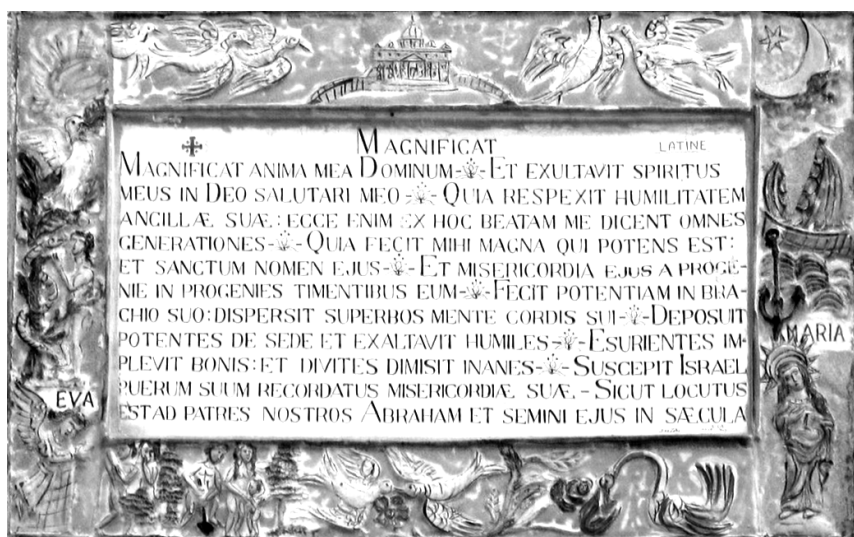 MAGNIFICAT LATINE
MAGNIFICAT ANIMA MEA DOMINUM - ET EXULTAVIT SPIRITUS
MEUS IN DEO SALUTARI MEO - QUIA RESPEXIT HUMILITATEM
ANCILLÆ SUÆ: ECCE ENIM EX HOC BEATAM ME DICENT OMNES
GENERATIONES - QUIA FECIT MIHI MAGNA QUI POTENS EST:
ET SANCTUM NOMEN EJUS - ET MISERICORDIA EJUS A PROGE-
NIE IN PROGENIES TIMENTIBUS EUM - FECIT POTENTIAM IN BRA-
CHIO SUO: DISPERSIT SUPERBOS MENTE CORDIS SUI - DEPOSUIT
POTENTES DE SEDE ET EXALTAVIT HUMILES - ESURIENTES IM-
PLEVIT BONIS: ET DIVITES DIMISIT INANES - SUSCEPIT ISRAEL
PUERUM SUUM RECORDATUS MISERICORDIÆ SUÆ. - SICUT LOCUTUS
EST AD PATRES NOSTROS ABRAHAM ET SEMINI EJUS IN SÆCULA
EVA
MARIA